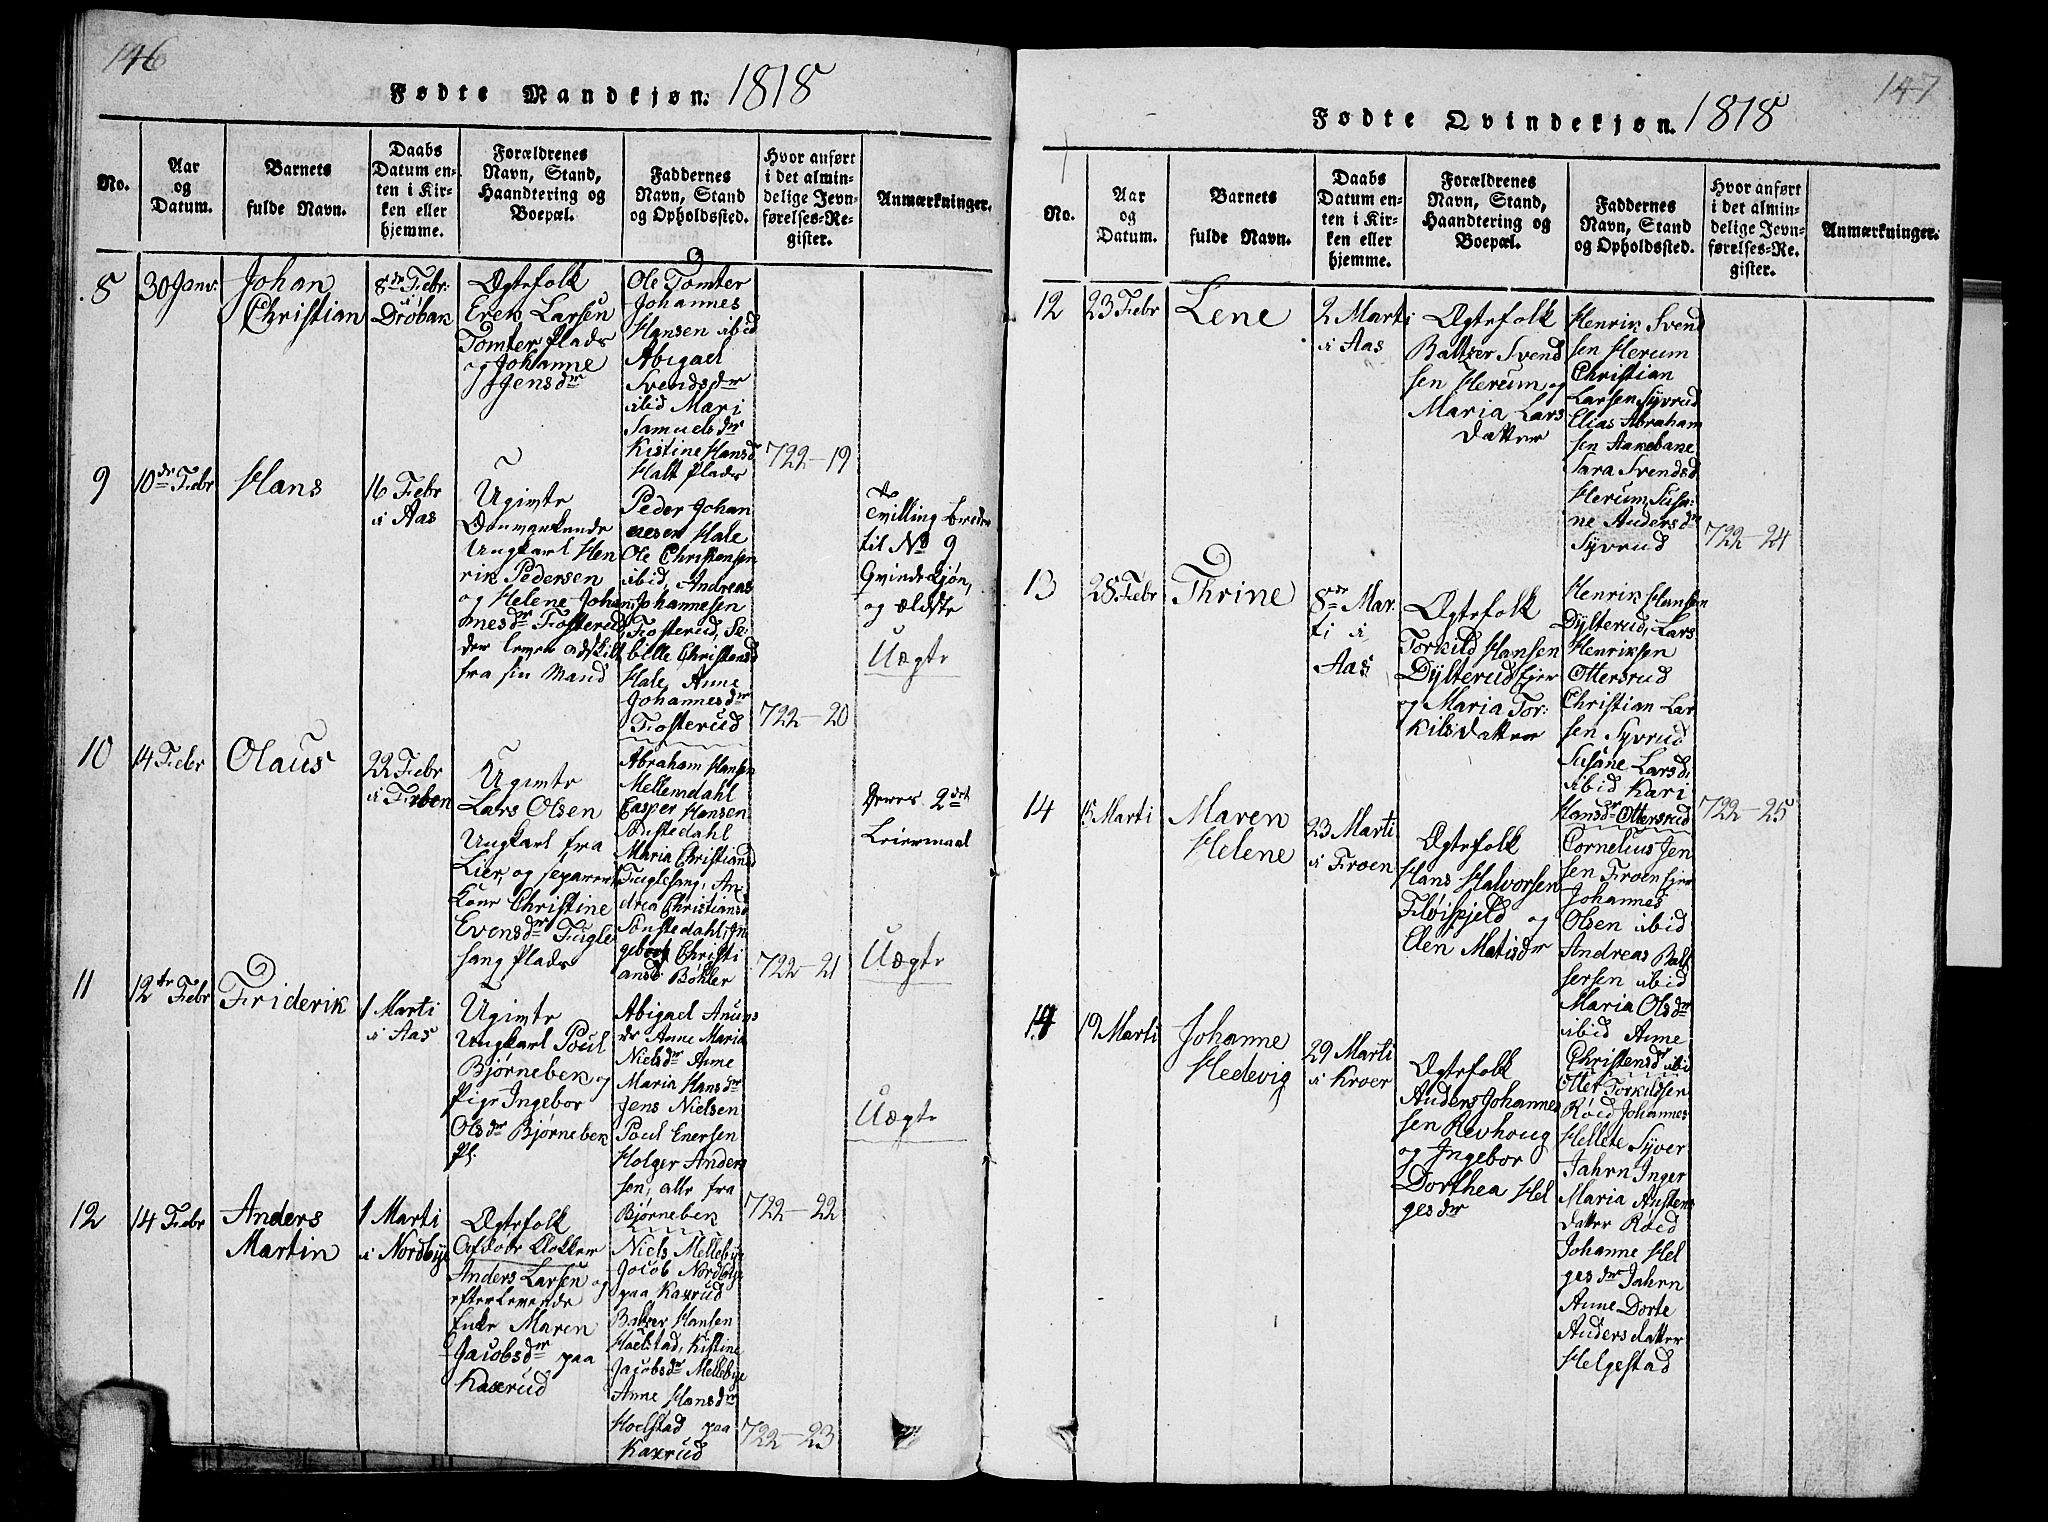 146
Fødte Mandkjøn. 1818
No.
Aar
og
Datum.
Barnets
fulde Navn.
Daabs
Datum en-
ten i Kir-
ken eller
hjemme.
Forældrenes
Navn, Stand,
Haandtering og
Boepæl.
Faddernes
Navn, Stand
og Opholdssted.
Hvor anført
i det almin-
delige Jevn-
førelses-Re-
gister.
Anmærkninger.
8
30 Janv:
Johan
Christian
8de Febr:
i
Drøbak
Ægtefolk
Erek Larsen
Tomter Plads
og Johanne
Jensdr
Ole Tomter
Johannes
Hansen ibid
Abigael
Svendsdr
ibid Mari
Samuelsdr
Kistine Hansd
Halt Plads
722-19
9
10de Febr
Hans
16 Febr
i Aas
Ugivte
Ungkarl Hen
rik Pedersen
og Helene Johan
nesdr Fosterud
der lever adskilt
fra sin Mand
Peder Johan
nesen Hale
Ole Christensen
ibid, Andreas
Johannesen
Fosterud, Se-
bille Christensd
Hale, Anne
Johannesdr
Fosterud
722-20
Tvilling broder
til No 9
Qvindekjøn,
og ældste
Uægte
10
14 Febr
Olaus
22 Febr
i Froen
Ugivte
Lars Olsen
Ungkarl fra
Lier, og separert
Kone Christine
Evensdr Fugle
sang Plads
Abraham Hansen
Mellemdahl
Casper Hansen
Sønstedahl
Maria Christiansd
Fuglesang, An
drea Christiansd
Sønstedahl, In
geborg Christi
ansd Bøhler
722-21
Deres 2det
Leiermaal
Uægte
11
12te Febr
Friderik
1 Marti
i Aas
Ugivte
Ungkarl Poul
Bjørnebek og
Pige Ingebor
Olsdr Bjørnebek
Pl.
Abigael Anuns
dr Anne Maria
Nielsdr Anne
Maria Hansdr
Jens Nielsen
Poul Enersen
Holger Anders
sen, alle fra
Bjørnebek
722-22
Uægte
12
14 Febr
Anders
Martin
1 Marti
i Nordbye
Ægtefolk
Afdøde Klokker
Anders Larsen og
efterlevende
Enke Maren
Jacobsdr paa
Kaxrud
Niels Mellebye
Jocob Nordbye
paa Kaxrud
Baltzer Hansen
Hoelstad, Kistine
Jacobsdr Mellebye
Anne Hansdr
Hoelstad paa
Kaxrud
722-23
147
Fødte Qvindekjøn. 1818
No.
Aar
og
Datum.
Barnets
fulde Navn.
Daabs
Datum en-
ten i Kir-
ken eller
hjemme.
Forældrenes
Navn, Stand,
Haandtering og
Boepæl.
Faddernes
Navn, Stand
og Opholdssted.
Hvor anført
i det almin-
delige Jevn-
førelses-Re-
gister.
Anmærkninger.
12
23 Febr
Lene
2 Marti
i Aas
Ægtefolk
Baltzer Svend
sen Herum og
Maria Lars
datter
Henrik Svend
sen Herum
Christian
Larsen Syvrud
Elias Abraham
sen Aakebane
Sara Svendsd
Herum, Susa-
ne Andersdr
Syvrud
722-24
13
28 Febr
Thrine
8de Mar-
ti i
Aas
Ægtefolk
Torkild Hansen
Dylterud Ejer
og Maria Tor-
kilsdatter
Henrik Hansen
Dylterud, Lars
Henriksen
Ottersrud
Christian Lar
sen Syvrud
Susane Larsd
ibid Kari
Hansdr Ottersrud
722-25
14
15 Marti
Maren
Helene
23 Marti
i Froen
Ægtefolk
Hans Halvorsen
Fløispjeld og
Elen Matisdr
Cornelius Jen
sen Froen Ejer
Johannes
Olsen ibid
Andreas Balt
sersen ibid
Maria Olsdr
ibid Anne
Christensd ibid
14
19 Marti
Johanne
Hedevig
29 Marti
i Kroer
Ægtefolk
Anders Johannes
sen Revhoug
og Ingebor
Dorthea Hel
gesdr
Ottet Torkildsen
Røed Johannes
Hellete Syver
Jahrn Inger
Maria Austens
datter Røed
Johanne Hel
gesdr Jahrn
Anne Dorte
Andersdatter
Helgestad